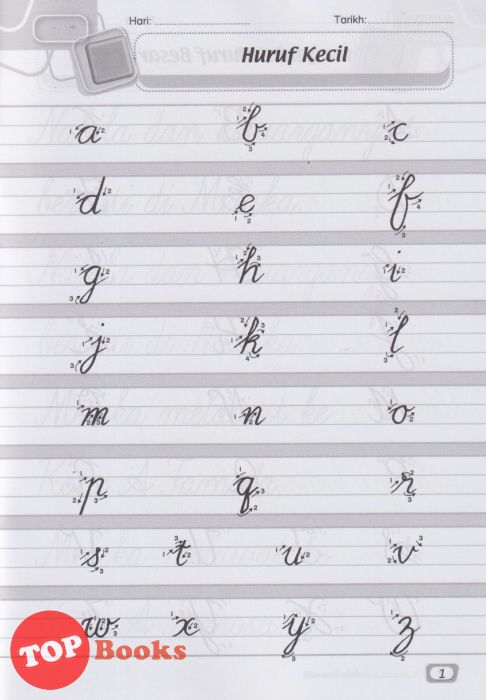 Hari: Tarikh:
Huruf Kecil
a b c
d e f
g h i
j k l
m n o
p q r
s t u v
w x y z
TOP Books
1